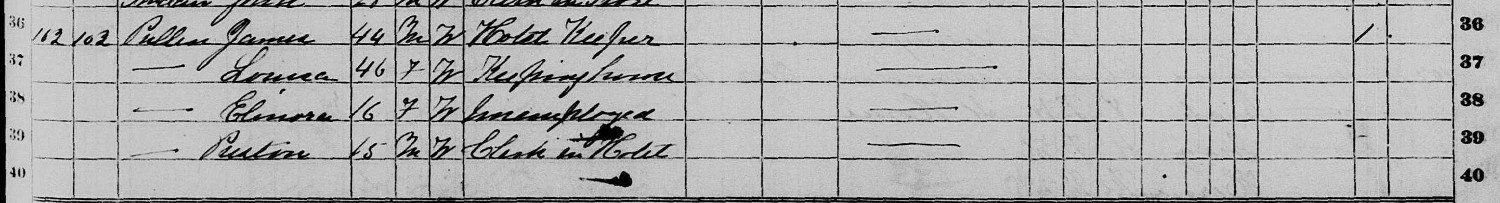 36 162 102 Pullen James 44 M W Hotel Keeper — 1 36
37 — Louisa 46 F W Keeping house — 37
38 — Elinora 16 F W Unemployed — 38
39 — Preston 15 M W Clerk in Hotel — 39
40 40